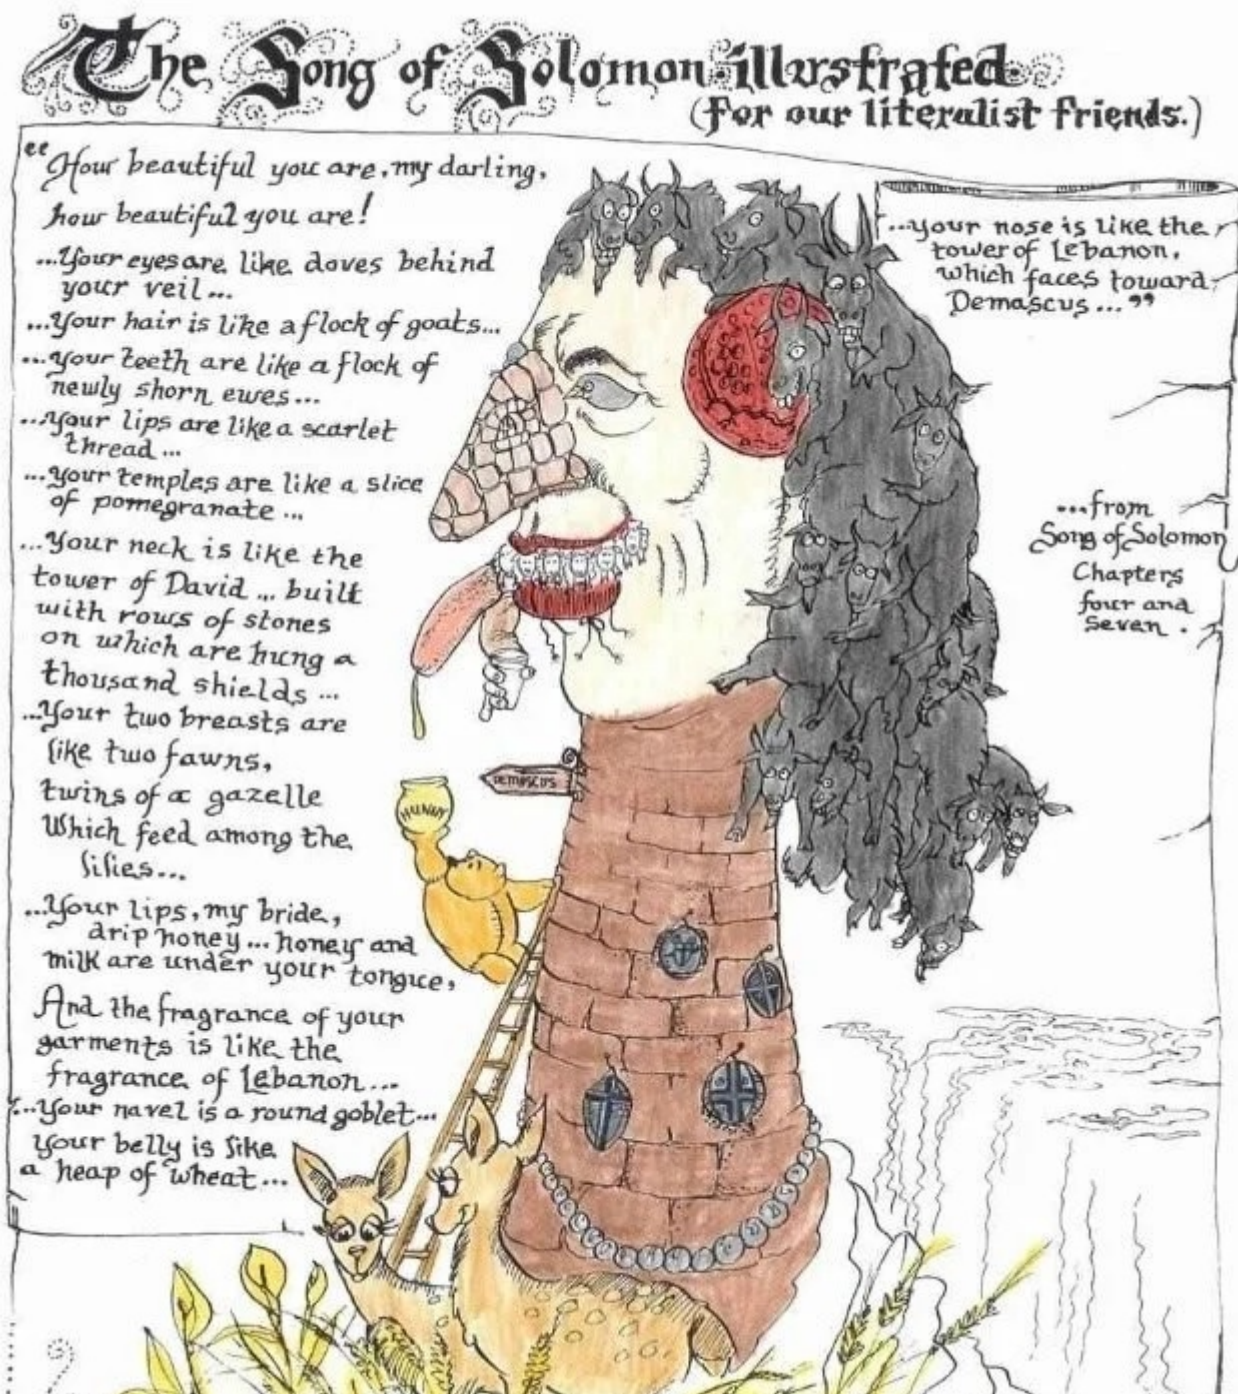 The Song of Solomon illustrated.
(for our literalist friends.)
"How beautiful you are, my darling,
how beautiful you are!
...Your eyes are like doves behind
your veil...
...Your hair is like a flock of goats...
...Your teeth are like a flock of
newly shorn ewes...
...Your lips are like a scarlet
thread...
...Your temples are like a slice
of pomegranate...
...Your neck is like the
tower of David... built
with rows of stones
on which are hung a
thousand shields...
...Your two breasts are
like two fawns,
twins of a gazelle
Which feed among the
lilies...
...Your lips, my bride,
drip honey... honey and
milk are under your tongue,
And the fragrance of your
garments is like the
fragrance of Lebanon...
...Your navel is a round goblet...
your belly is like
a heap of wheat...
...your nose is like the
tower of Lebanon,
which faces toward
Demascus..."
...from
Song of Solomon
Chapters
four and
seven.
DEMASCUS
HUNNY